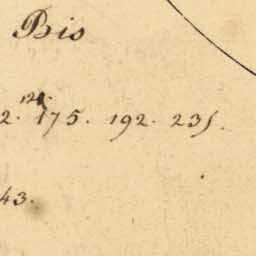 Bis
124.
2. 175. 192. 235.
43.